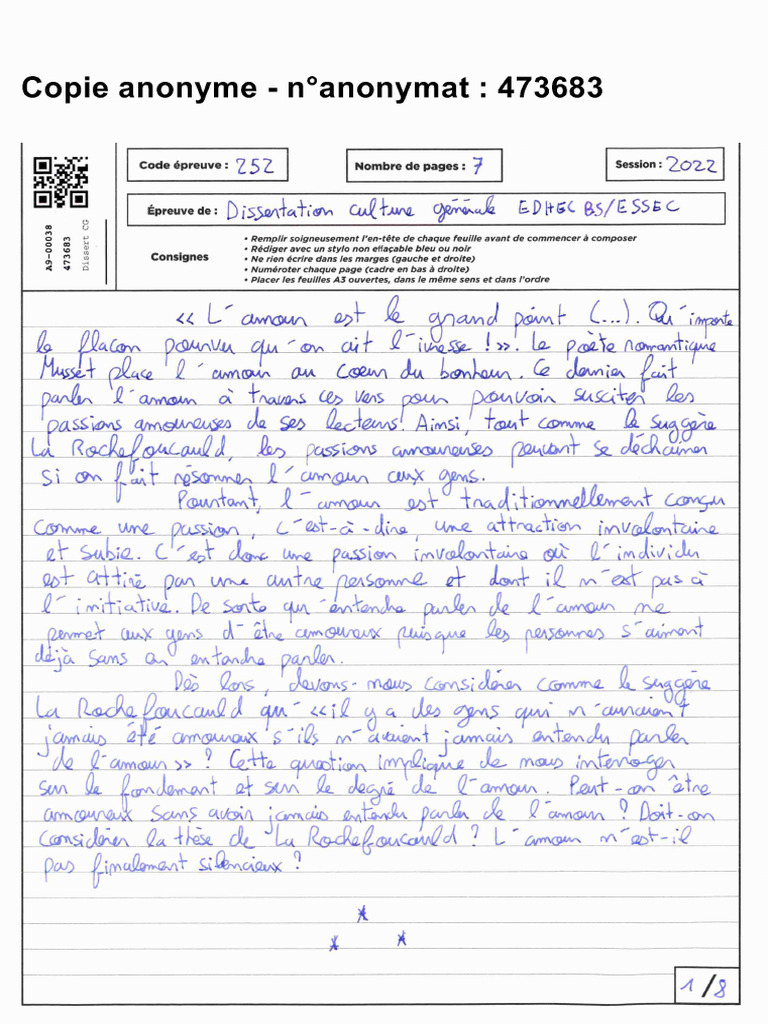 Copie anonyme - n°anonymat : 473683
Code épreuve : 252
Nombre de pages : 7
Session : 2022
Épreuve de : Dissertation culture générale EDHEC BS/ESSEC
A9-00038
473683
Dissert CG
Consignes
• Remplir soigneusement l'en-tête de chaque feuille avant de commencer à composer
• Rédiger avec un stylo non effaçable bleu ou noir
• Ne rien écrire dans les marges (gauche et droite)
• Numéroter chaque page (cadre en bas à droite)
• Placer les feuilles A3 ouvertes, dans le même sens et dans l'ordre
« L'amour est le grand point (...). Qu'importe
le flacon pourvu qu'on ait l'ivresse ! ». Le poète romantique
Musset place l'amour au coeur du bonheur. Ce dernier fait
parler l'amour à travers ces vers pour pouvoir susciter les
passions amoureuses de ses lecteurs. Ainsi, tout comme le suggère
La Rochefoucauld, les passions amoureuses peuvent se déchainer
si on fait résonner l'amour aux gens.
Pourtant, l'amour est traditionnellement conçu
comme une passion, c'est-à-dire, une attraction involontaire
et subie. C'est donc une passion involontaire où l'individu
est attiré par une autre personne et dont il n'est pas à
l'initiative. De sorte qu'entendre parler de l'amour ne
permet aux gens d'être amoureux puisque les personnes s'aiment
déjà sans en entendre parler.
Dès lors, devons-nous considérer comme le suggère
La Rochefoucauld qu'« il y a des gens qui n'auraient
jamais été amoureux s'ils n'avaient jamais entendu parler
de l'amour » ? Cette question implique de nous interroger
sur le fondement et sur le degré de l'amour. Peut-on être
amoureux sans avoir jamais entendu parler de l'amour ? Doit-on
considérer la thèse de La Rochefoucauld ? L'amour n'est-il
pas finalement silencieux ?
*
* *
1/8